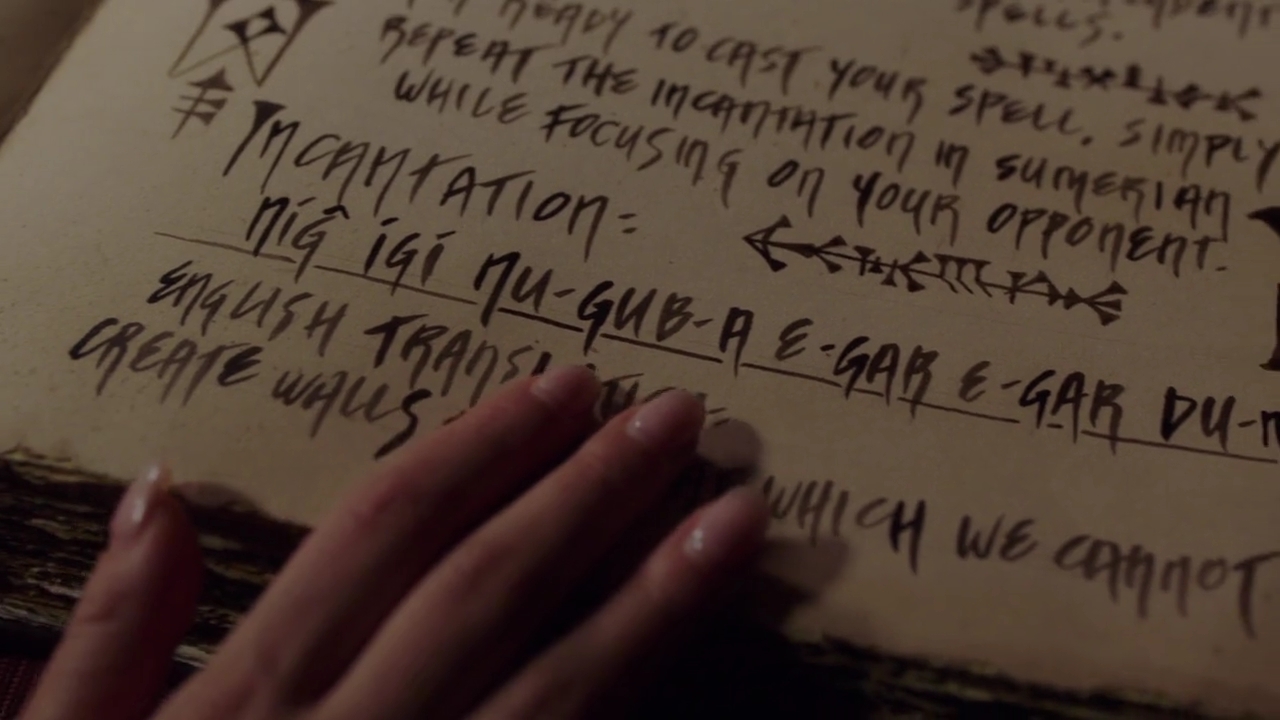 READY TO CAST YOUR SPELL, SIMPLY
REPEAT THE INCANTATION IN SUMERIAN
WHILE FOCUSING ON YOUR OPPONENT.
SPELLS.
INCANTATION:
níĝ igi nu-GUB-A E-GAR E-GAR DU-
ENGLISH TRANSLATION:
CREATE WALLS WHICH WE CANNOT